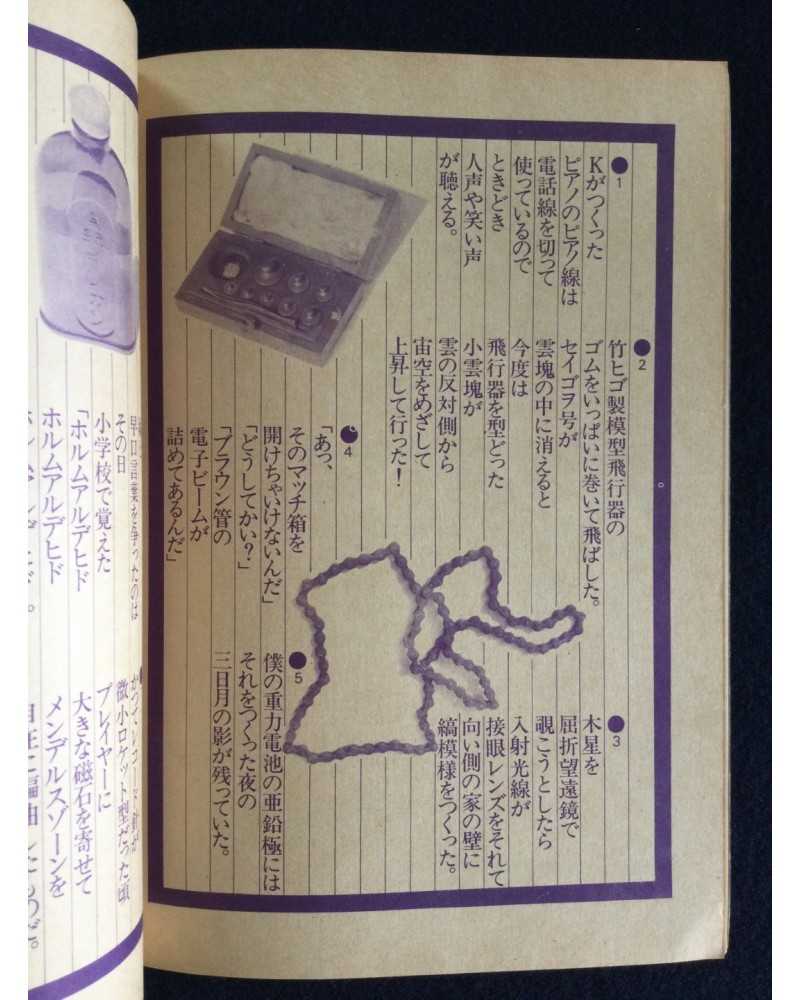 ●1
Kがつくった
ピアノのピアノ線は
電話線を切って
使っているので
ときどき
人声や笑い声
が聴える。
●2
竹ヒゴ製模型飛行器の
ゴムをいっぱいに巻いて飛ばした。
セイゴヲ号が
雲塊の中に消えると
今度は
飛行器を型どった
小雲塊が
雲の反対側から
宙空をめざして
上昇して行った！
●3
木星を
屈折望遠鏡で
覗こうとしたら
入射光線が
接眼レンズをそれて
向い側の家の壁に
縞模様をつくった。
●4
「あっ、
そのマッチ箱を
開けちゃいけないんだ」
「どうしてかい？」
「ブラウン管の
電子ビームが
詰めてあるんだ」
●5
僕の重力電池の亜鉛極には
それをつくった夜の
三日月の影が残っていた。
早口言葉を争ったのは
その日
小学校で覚えた
「ホルムアルデヒド
ホルムアルデヒド
かつてレコード針が
微小ロケット型だった頃
プレイヤーに
大きな磁石を寄せて
メンデルスゾーンを